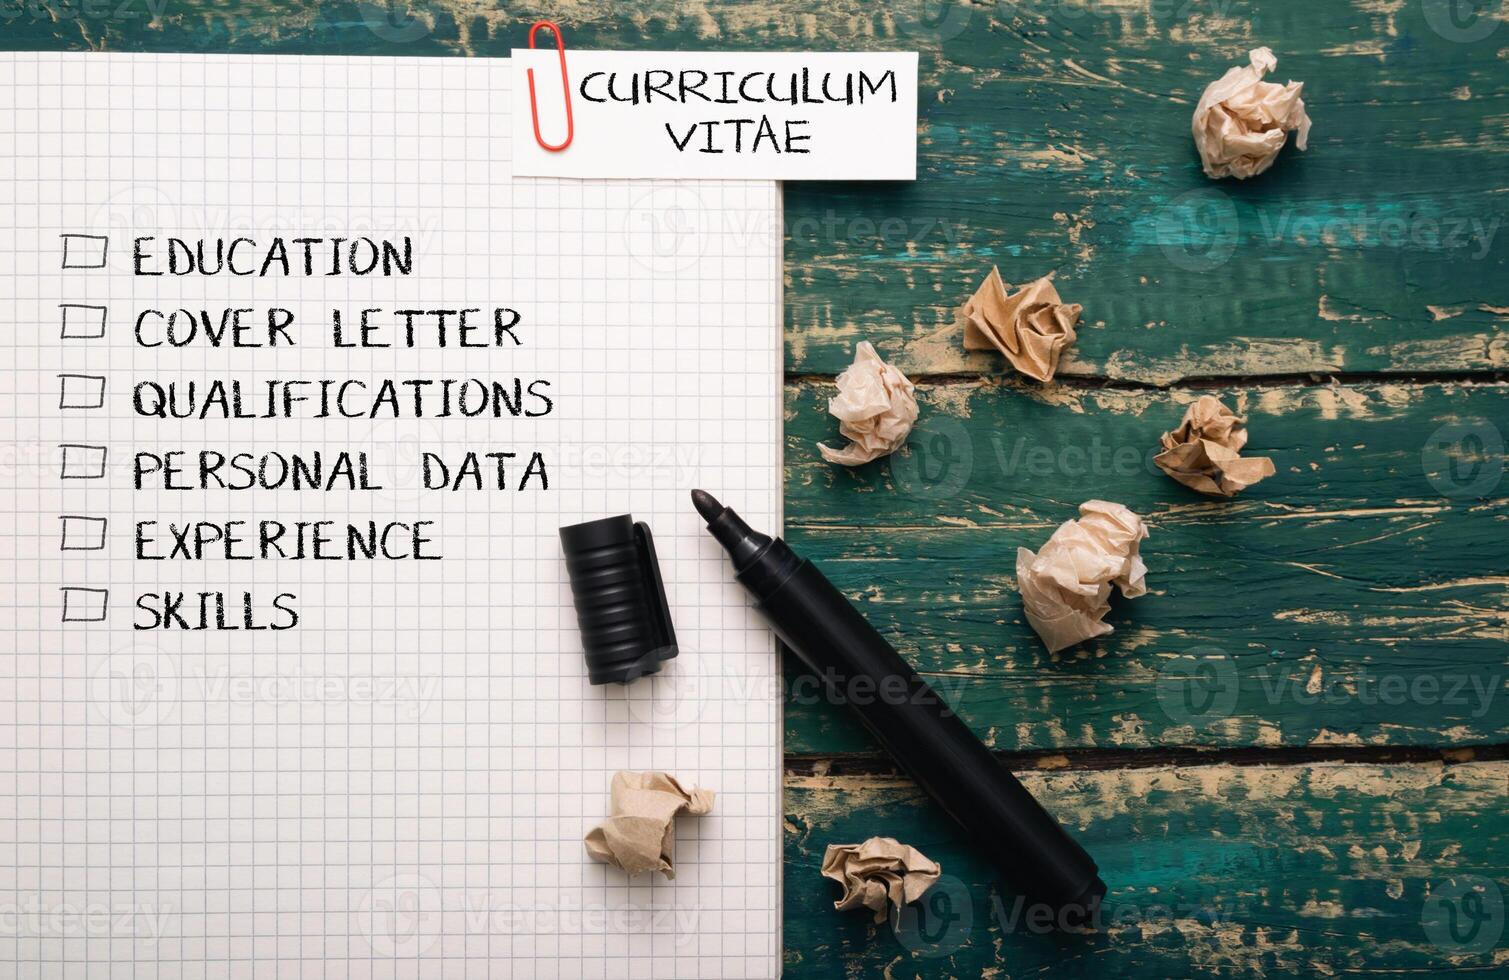 CURRICULUM
VITAE
EDUCATION
COVER LETTER
QUALIFICATIONS
PERSONAL DATA
EXPERIENCE
SKILLS
Vecteezy